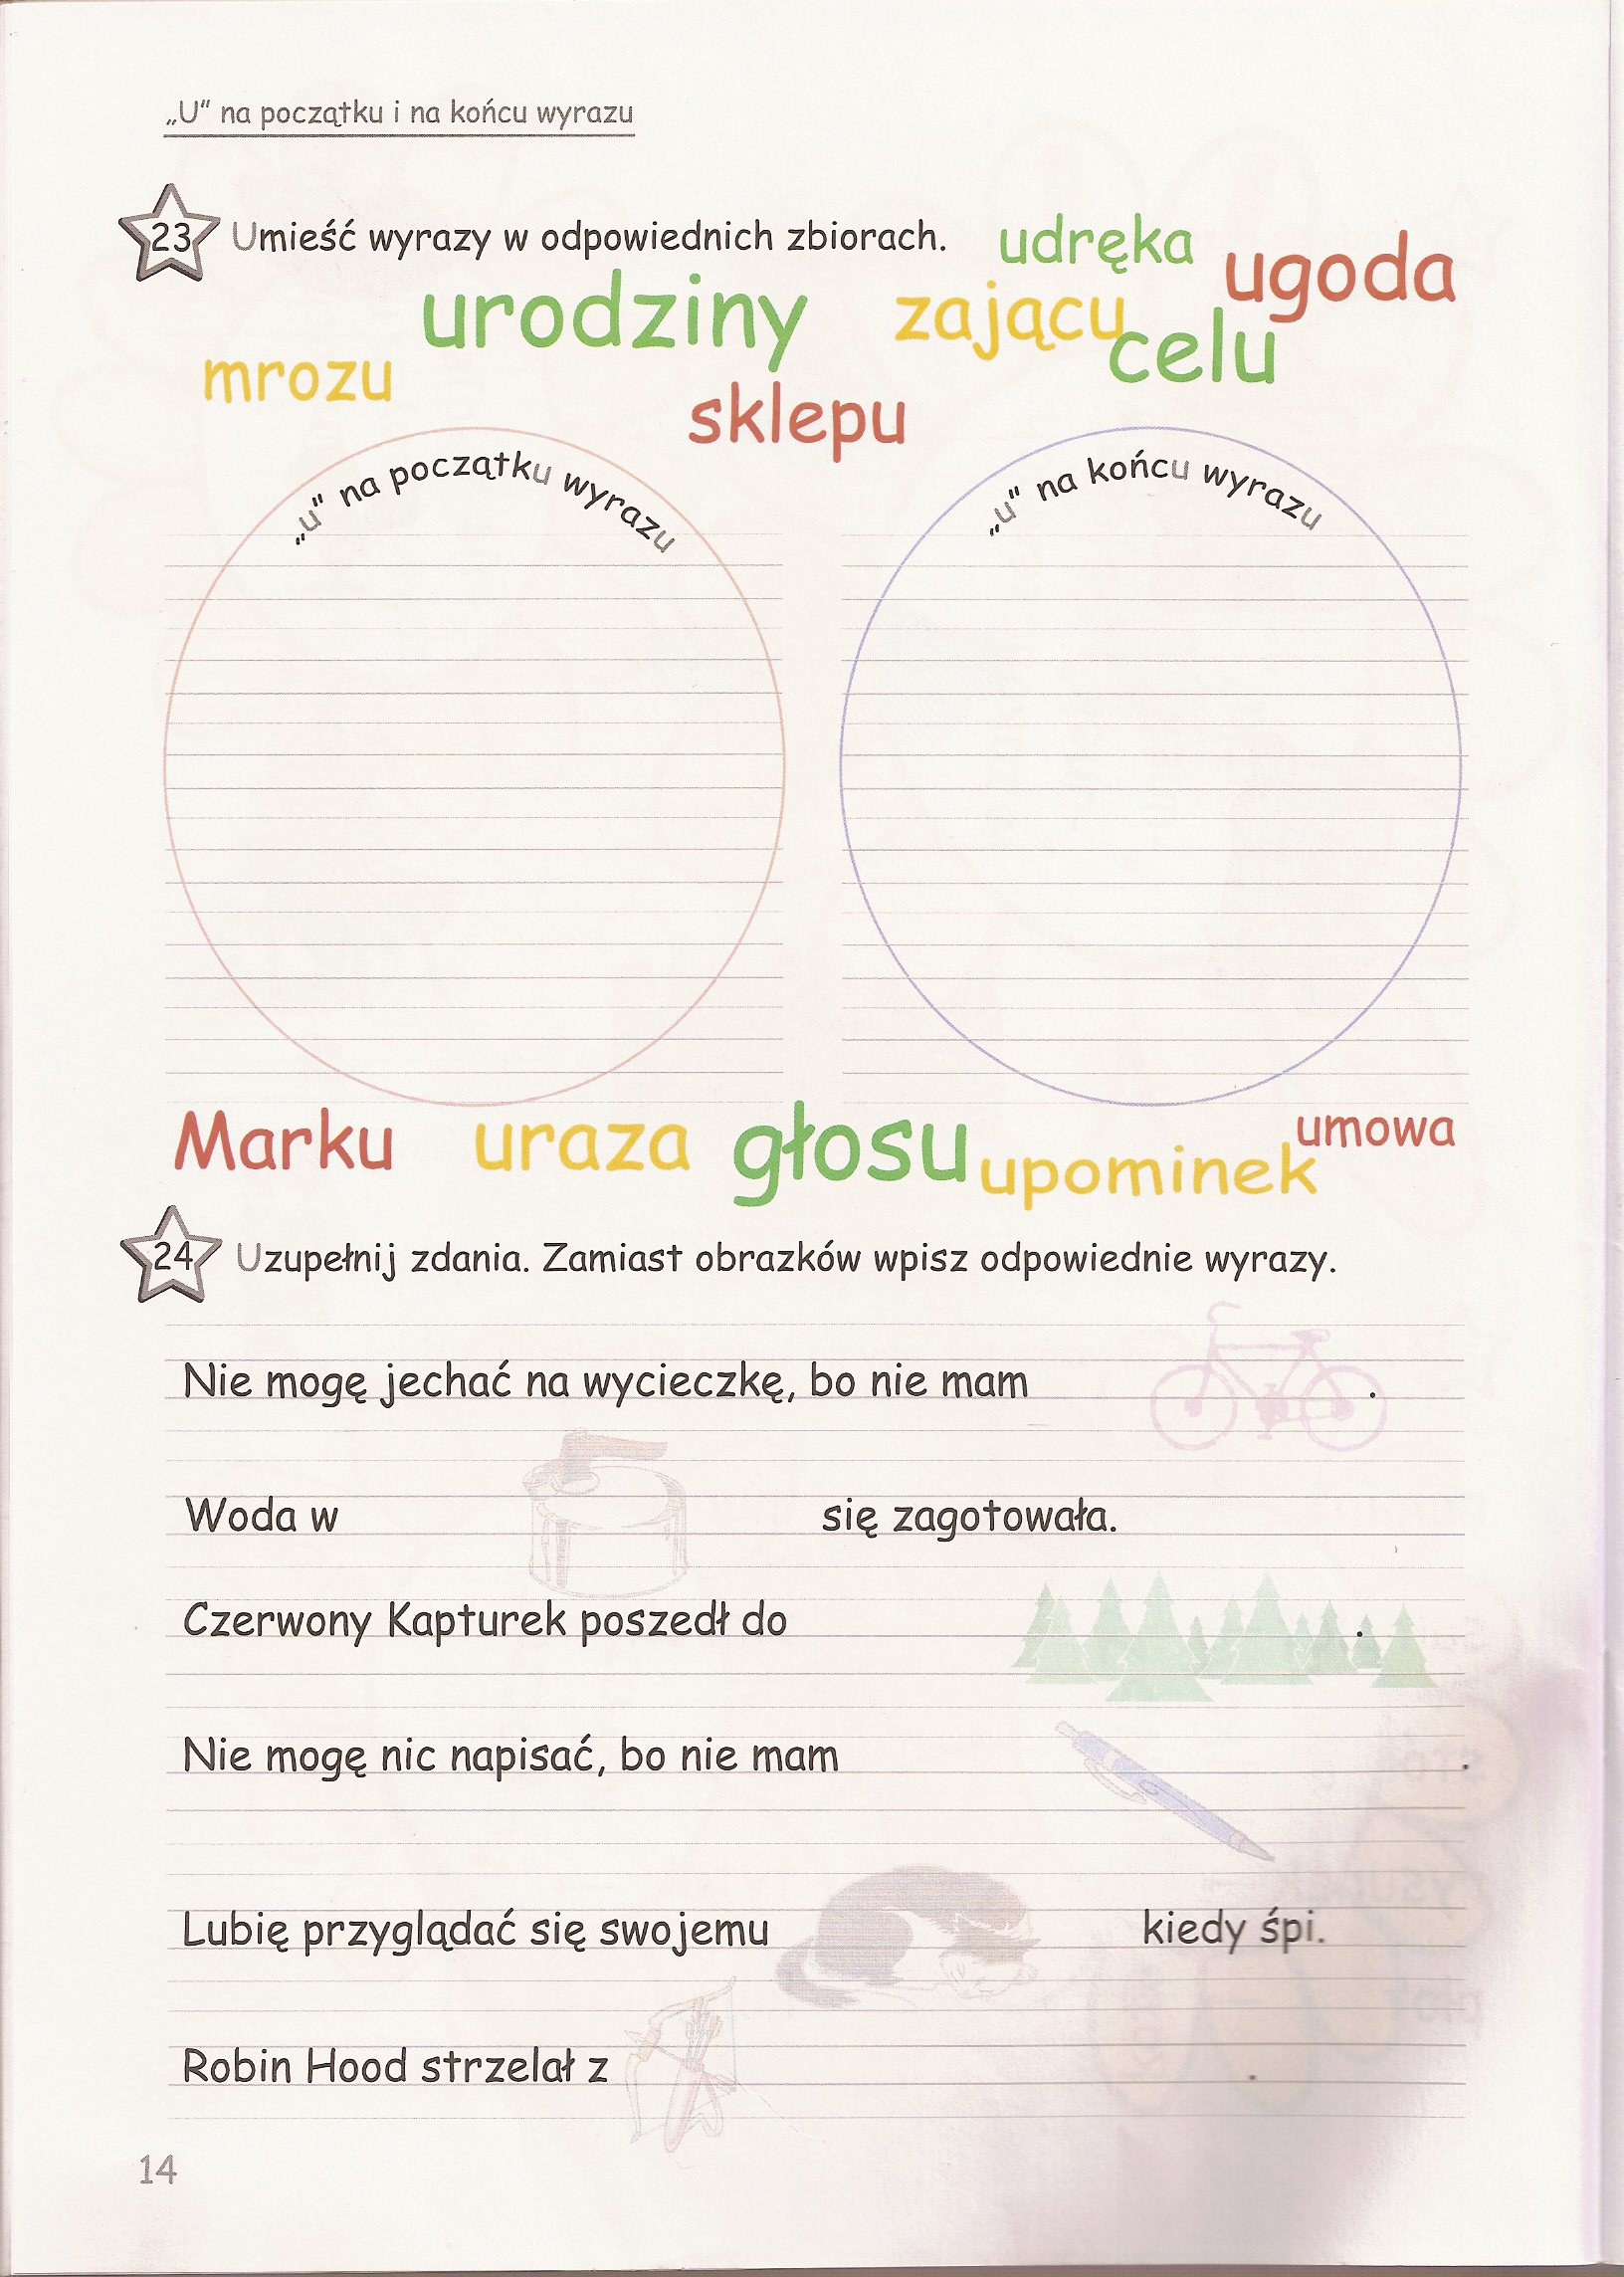 „U” na początku i na końcu wyrazu
23 Umieść wyrazy w odpowiednich zbiorach.
udręka
ugoda
urodziny
zającu
celu
mrozu
sklepu
„u” na początku wyrazu
„u” na końcu wyrazu
Marku
uraza
głosu
upominek
umowa
24 Uzupełnij zdania. Zamiast obrazków wpisz odpowiednie wyrazy.
Nie mogę jechać na wycieczkę, bo nie mam .
Woda w się zagotowała.
Czerwony Kapturek poszedł do .
Nie mogę nic napisać, bo nie mam .
Lubię przyglądać się swojemu kiedy śpi.
Robin Hood strzelał z .
14